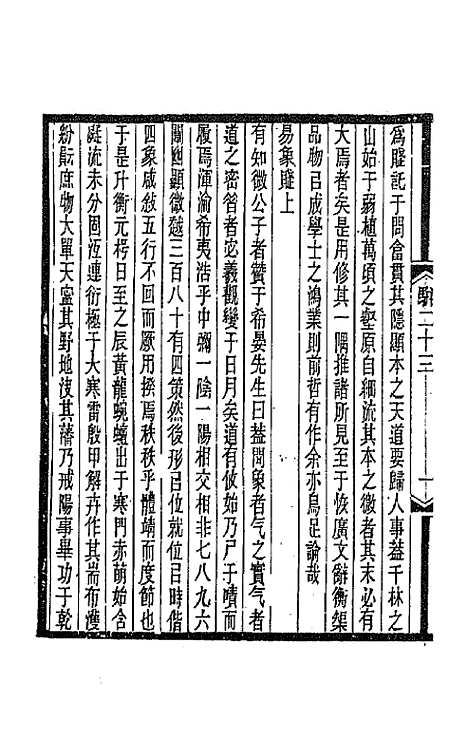 為賤託于問畣貫其隱顯本之天道要歸人事葢千林之
山始于弱植萬頃之壑原自細流其本之微者其末必有
大焉者矣是用修其一隅推諸所見至于恢廣文辭衡榘
品物己成學士之鴻業則前哲有作余亦烏足論哉
易象賤上
有知微公子者贊于希晏先生曰葢聞象者气之實气者
道之密咎者宓羲觀變于日月矣道有攸始乃見于嘖而
履焉渾渝希夷浩乎中彌一陰一陽相交相非七八九六
闡幽顯微越三百八十有四策然後形己位就己時偕
四象咸敍五行迭乎厥用揆焉秩秩乎體靖而度節也
于是升衡元枵日至之辰黃龍蜿蟺出于寒門赤萌始含
凝流未分固沍連衍極于大寒雷殷甲解卉作其耑布濩
紛䎙庶物大單天䆩其野地㳷其藩乃戒陽事畢功于乾
騈二十三
一